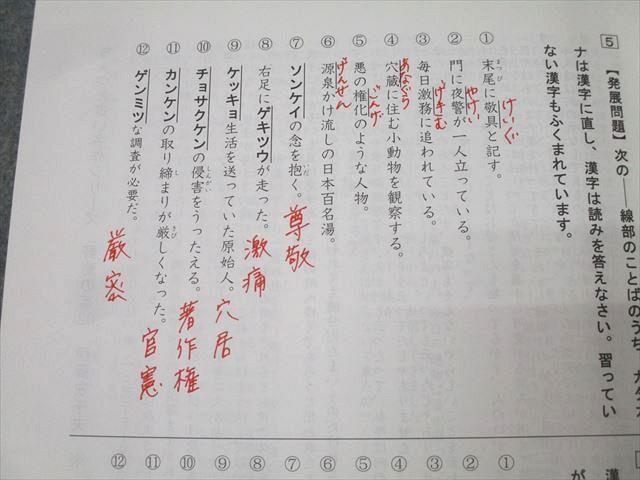 5 【発展問題】次の――線部のことばのうち、カタカ
ナは漢字に直し、漢字は読みを答えなさい。習ってい
ない漢字もふくまれています。
① 末尾に敬具と記す。
まつび
けいぐ
② 門に夜警が一人立っている。
やけい
③ 毎日激務に追われている。
げきむ
④ 穴蔵に住む小動物を観察する。
あなぐら
⑤ 悪の権化のような人物。
ごんげ
⑥ 源泉かけ流しの日本百名湯。
げんせん
⑦ ソンケイの念を抱く。
いだ
尊敬
⑧ 右足にゲキツウが走った。
激痛
⑨ ケッキョ生活を送っていた原始人。
穴居
⑩ チョサクケンの侵害をうったえる。
しんがい
著作権
⑪ カンケンの取り締まりが厳しくなった。
し
きび
官憲
⑫ ゲンミツな調査が必要だ。
厳密
①
②
③
④
⑤
⑥
⑦
⑧
⑨
⑩
⑪
⑫